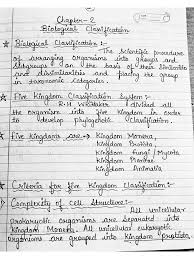 Chapter-2
Biological Classification
★ Biological Classification :-
The Scientific procedure
of arranging organisms into groups and
Subgroups on the basis of their similarities
and dissimilarities and placing the group
in taxonomic categories.
★ Five Kingdom Classification System :-
R.H. Whittaker divided all
the organisms into five kingdom in order
to develop phylogenetic classification.
★ Five Kingdoms are → Kingdom Monera
Kingdom Protista
Kingdom Fungi / Mycota
Kingdom Plantae
Kingdom Animalia
★ Criteria for five Kingdom Classification :-
→ Complexity of Cell Structure :-
All unicellular
Prokaryotic organisms are separated into
Kingdom Monera. All unicellular eukaryotic
organisms are grouped into Kingdom Protista